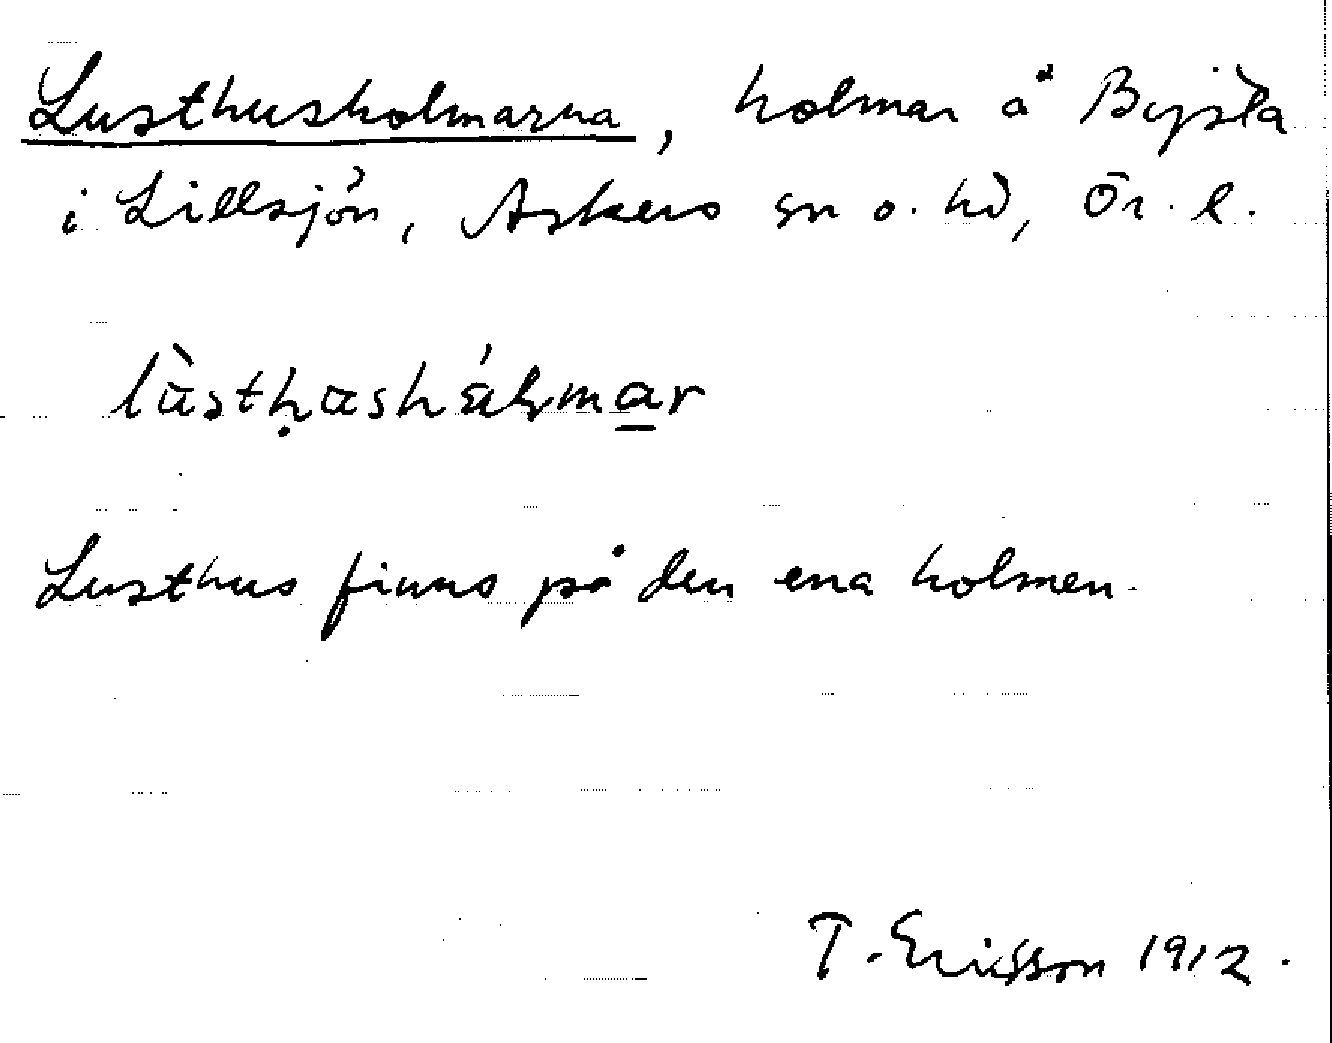 Lusthusholmarna, holmar å Bysta
i Lillsjön, Askers sn o. hd, Ör. l.
Lusthus finns på den ena holmen.
T. Ericsson 1912.